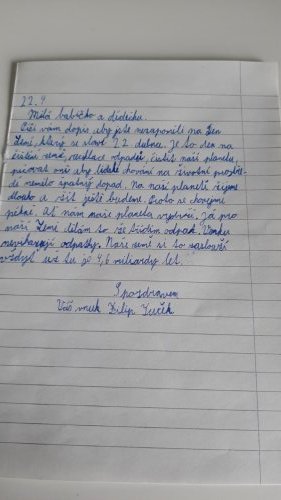 22.4
Milá babičko a dědečku.
Píši vám dopis, aby jste nezapomněli na Den
Země, který se slaví 22 dubna. Je to den na
čistění země, recyklace odpadů, čistit naši planetu,
pečovat o ni aby lidské chování na životní prostře-
dí nemělo špatný dopad. Na naší planetě žijeme
dlouho a žít ještě budem. Proto se chovejme
pěkně. Ať nám naše planeta vydrží. Já pro
naší Zemi dělám to že třídím odpad. Venku
nevyhazuji odpadky. Naše země si to zaslouží
vždyť už tu je 4,6 miliardy let.
S pozdravem
Váš vnuk Filip